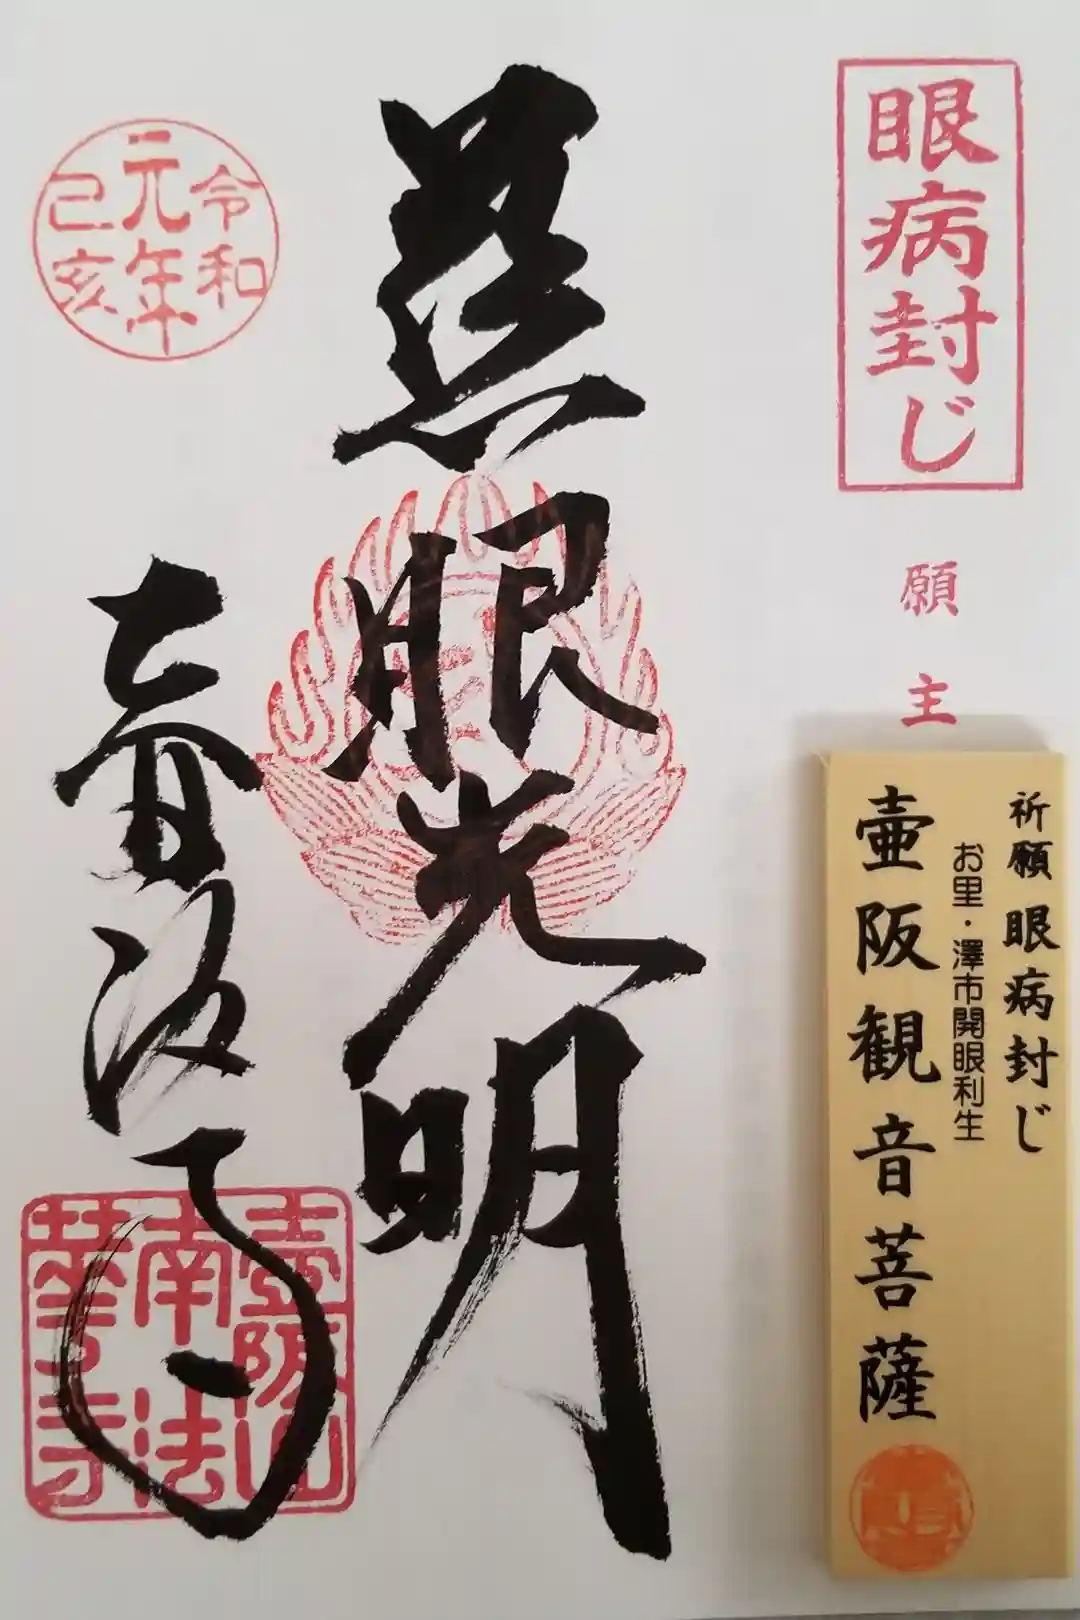 眼病封じ
願主
祈願 眼病封じ
お里・澤市開眼利生
壷阪観音菩薩
慈眼光明
令和
元年
己亥
壷阪寺
壷阪山
南法
華寺